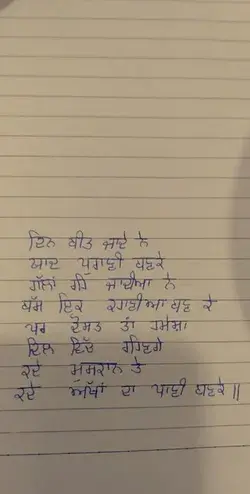 ਦਿਨ ਬੀਤ ਜਾਂਦੇ ਨੇ
ਯਾਦ ਪੁਰਾਣੀ ਬਣਕੇ
ਗੱਲਾਂ ਰਹਿ ਜਾਂਦੀਆ ਨੇ
ਬੱਸ ਇਕ ਕਹਾਣੀਆ ਬਣ ਕੇ
ਪਰ ਦੋਸਤ ਤਾਂ ਹਮੇਸ਼ਾ
ਦਿਲ ਵਿੱਚ ਰਹਿਣਗੇ
ਕਦੇ ਮੁਸਕਾਨ ਤੇ
ਕਦੇ ਅੱਖਾਂ ਦਾ ਪਾਣੀ ਬਣਕੇ ||